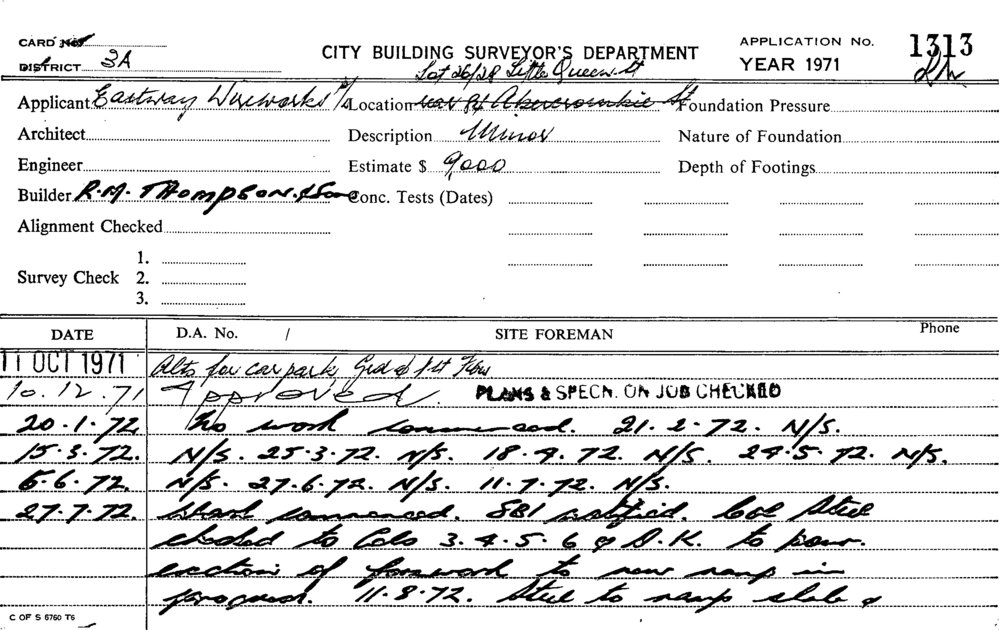 CARD No.
DISTRICT 3A
CITY BUILDING SURVEYOR'S DEPARTMENT
APPLICATION No. 1313
YEAR 1971
Lot 26/28 Little Queen St
Applicant Eastway Wireworks P/L Location rear 84 Abercrombie St Foundation Pressure
Architect Description Minor Nature of Foundation
Engineer Estimate $ 9,000 Depth of Footings
Builder R.M. THOMPSON & Son Conc. Tests (Dates)
Alignment Checked
Survey Check 1.
2.
3.
DATE D.A. No. / SITE FOREMAN Phone
11 OCT 1971 Alts for car park, Grd & 1st Flrs
10.12.71 Approved. PLANS & SPECN. ON JOB CHECKED
20.1.72 No work commenced. 21.2.72. N/S.
15.3.72. N/S. 25.3.72. N/S. 18.4.72. N/S. 24.5.72. N/S.
6.6.72. N/S. 27.6.72. N/S. 11.7.72. N/S.
27.7.72. Work commenced. SBI notified. Col Steel
checked to Cols 3.4.5.6 & O.K. to pour.
erection of formwork to new ramp in
progress. 11.8.72. Steel to ramp slab &
C OF S 6760 T6